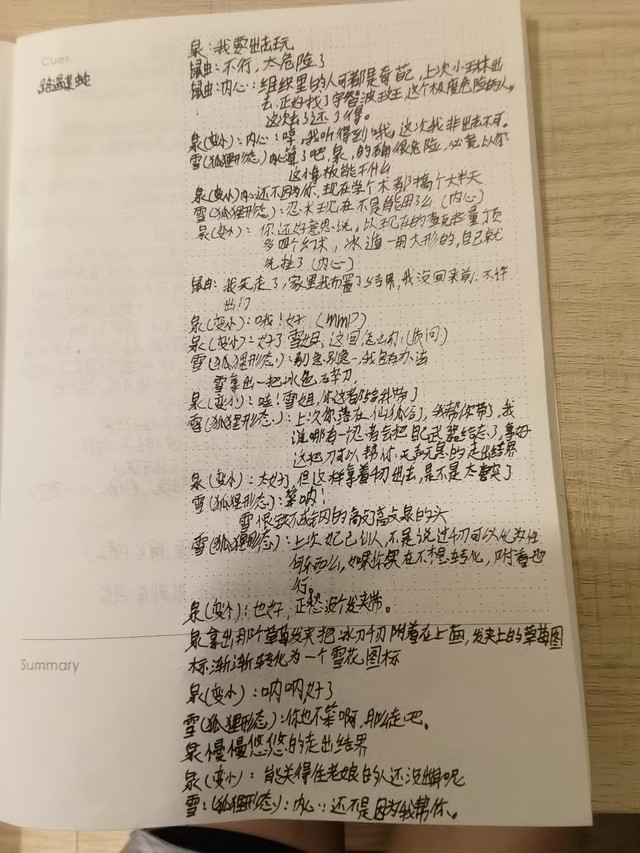 Cues
路过某蛇
泉:我要出去玩
鼬:不行,太危险了
鼬:内心:组织里的人可都是奇葩,上次小珠出
去,正好找了宇智波斑,这个极度危险的人,
这次去了还了得。
泉(变小):内心:哼,我听得到哦,这次我非出去不可。
雪(狐狸形态)内心算了吧,泉,的确很危险,必竟以你
这身板能干什么
泉(变小)内心还不因为你,现在学个术都搞个大半天
雪(狐狸形态):忍术现在不是能用了么(内心)
泉(变小):你还好意思说,以现在的查克拉量顶
多四个幻术,冰遁一用大形的,自己就
先挂了(内心)
鼬:我先走了,家里我布置了结界,我没回来前不许
出门
泉(变小):哦!好(mmp)
泉(变小):好了雪姐,这回怎么办(质问)
雪(狐狸形态):别急别急,我自有办法
雪拿出一把冰色苦刀
泉(变小):哇!雪姐,你这都给我带了
雪(狐狸形态):上次你落在仙狐谷了,我帮你带了,我
说哪有一忍者会把自己武器给忘了,拿好
这把刀可以帮你无声无息的走出结界
泉(变小):太好了,但这样拿着刀出去,是不是太唐突了
雪(狐狸形态):笨呐!
雪恨铁不成钢的高高敲泉的头
雪(狐狸形态):上次妃己仙人,不是说过刀可以化为任
何东西么,如果你实在不想转化,附着也
行。
泉(变小):也好,正愁没个发夹带。
泉拿出那个草莓发夹把冰刀刃附着在上面,发夹上的草莓图
标渐渐转化为一个雪花图标
Summary
泉(变小):呐呐,好了
雪(狐狸形态):你也不笨啊,那走吧。
泉慢慢悠悠的走出结界
泉(变小):能关得住老娘的人还没出来呢
雪:(狐狸形态):内心:还不是因为我帮你。